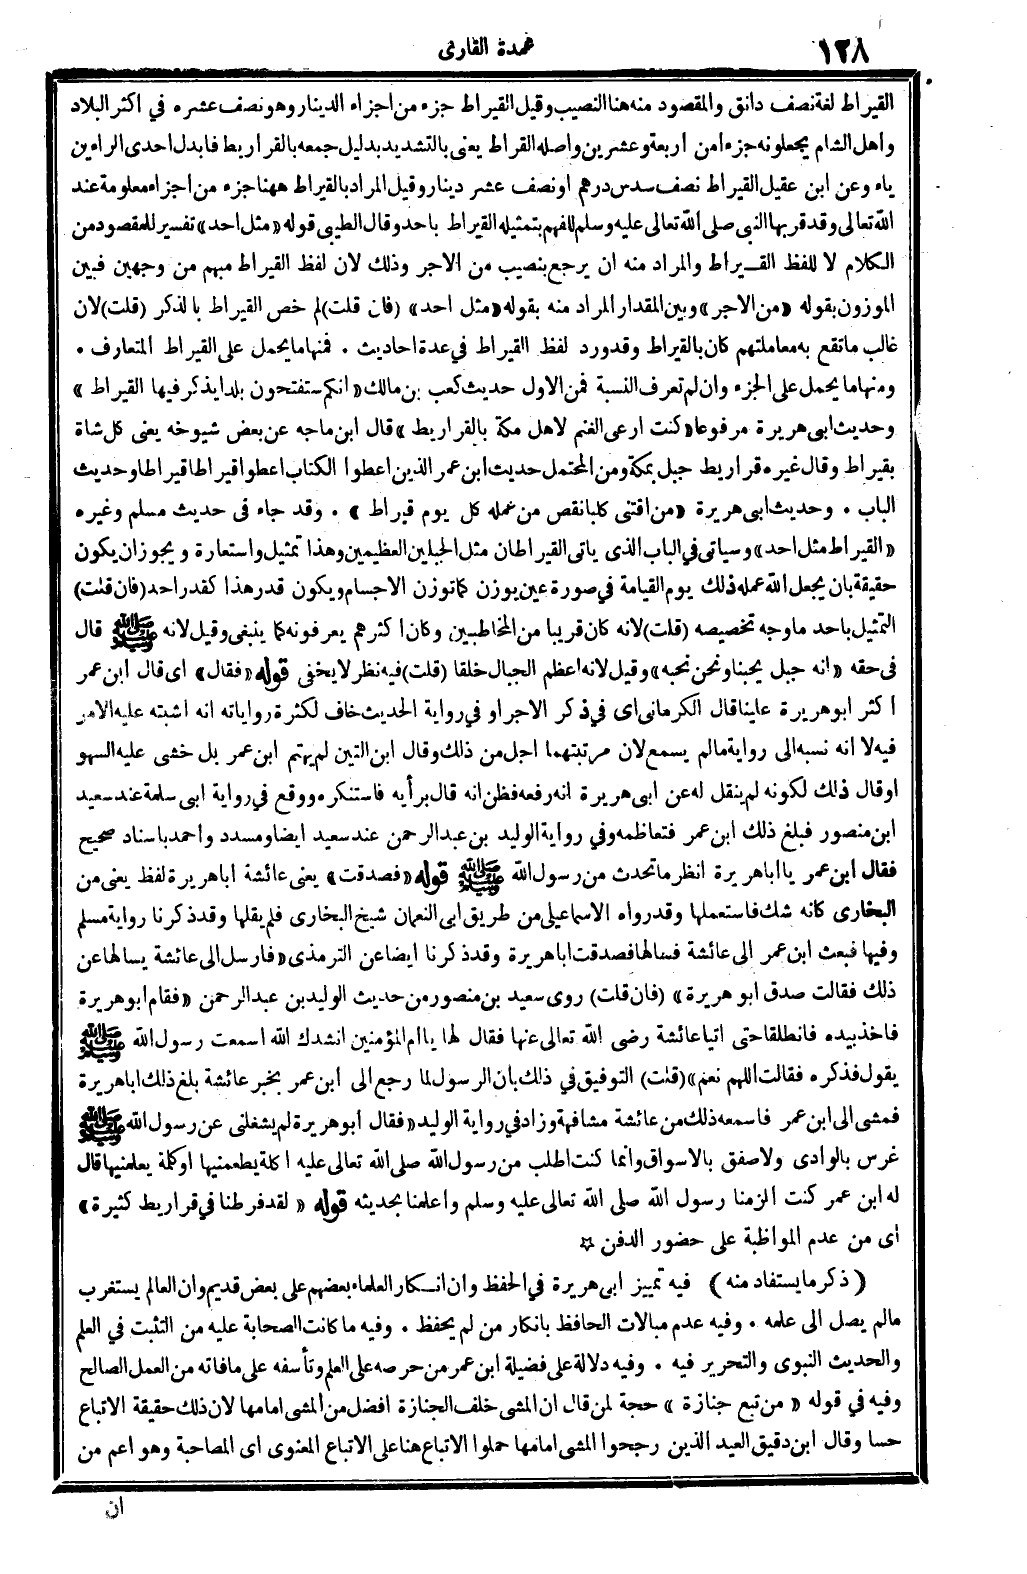 ١٢٨
عمدة القارى
القيراط لغة نصف دانق والمقصود منه هنا النصيب وقيل القيراط جزء من اجزاء الدينار وهو نصف عشره في اكثر البلاد
واهل الشام يجعلونه جزءا من اربعة وعشرين واصله القراط يعنى بالتشديد بدليل جمعه بالقراريط فابدل احدى الراءين
ياء وعن ابن عقيل القيراط نصف سدس درهم او نصف عشر دينار وقيل المراد بالقيراط ههنا جزء من اجزاء معلومة عند
الله تعالى وقد قربها النبى صلى الله تعالى عليه وسلم للفهم بتمثيله القيراط باحد وقال الطيبى قوله «مثل احد» تفسير للمقصود من
الكلام لا للفظ القيراط والمراد منه ان يرجع بنصيب من الاجر وذلك لان لفظ القيراط مبهم من وجهين فبين
الموزون بقوله «من الاجر» وبين المقدار المراد منه بقوله «مثل احد» (فان قلت) لم خص القيراط بالذكر (قلت) لان
غالب ما تقع به معاملتهم كان بالقيراط وقد ورد لفظ القيراط في عدة احاديث • فمنها ما يحمل على القيراط المتعارف •
ومنها ما يحمل على الجزء وان لم تعرف النسبة فمن الاول حديث كعب بن مالك «انكم ستفتحون بلدا يذكر فيها القيراط»
وحديث ابى هريرة مرفوعا «كنت ارعى الغنم لاهل مكة بالقراريط» قال ابن ماجه عن بعض شيوخه يعنى كل شاة
بقيراط وقال غيره قراريط جبل بمكة ومن المحتمل حديث ابن عمر الذين اعطوا الكتاب اعطوا قيراطا قيراطا وحديث
الباب • وحديث ابى هريرة «من اقتنى كلبا نقص من عمله كل يوم قيراط» • وقد جاء فى حديث مسلم وغيره
«القيراط مثل احد» وسياتى في الباب الذى ياتى القيراطان مثل الجبلين العظيمين وهذا تمثيل واستعارة ويجوز ان يكون
حقيقة بان يجعل الله عمله ذلك يوم القيامة في صورة عين يوزن كما توزن الاجسام ويكون قدر هذا كقدر احد (فان قلت)
التمثيل باحد ما وجه تخصيصه (قلت) لانه كان قريبا من المخاطبين وكان اكثرهم يعرفونه كما ينبغى وقيل لانه ﷺ قال
فى حقه «انه جبل يحبنا ونحن نحبه» وقيل لانه اعظم الجبال خلقا (قلت) فيه نظر لا يخفى قوله «فقال» اى قال ابن عمر
أكثر ابو هريرة علينا قال الكرمانى اى في ذكر الاجر او في رواية الحديث خاف لكثرة رواياته انه اشتبه عليه الامر
فيه لا انه نسبه الى رواية ما لم يسمع لان مرتبتهما اجل من ذلك وقال ابن التين لم يهتم ابن عمر بل خشى عليه السهو
او قال ذلك لكونه لم ينقل له عن ابى هريرة انه رفعه فظن انه قال برأيه فاستنكره ووقع في رواية ابى سلمة عند سعيد
ابن منصور فبلغ ذلك ابن عمر فتعاظمه وفي رواية الوليد بن عبد الرحمن عند سعيد ايضا ومسدد واحمد باسناد صحيح
فقال ابن عمر يا ابا هريرة انظر ما تحدث من رسول الله ﷺ قوله «فصدقت» يعنى عائشة ابا هريرة لفظ يعنى من
البخارى كانه شك فاستعملها وقد رواه الاسماعيلى من طريق ابى النعمان شيخ البخارى فلم يقلها وقد ذكرنا رواية مسلم
وفيها فبعث ابن عمر الى عائشة فسالها فصدقت ابا هريرة وقد ذكرنا ايضا عن الترمذى «فارسل الى عائشة يسالها عن
ذلك فقالت صدق ابو هريرة» (فان قلت) روى سعيد بن منصور من حديث الوليد بن عبد الرحمن «فقام ابو هريرة
فاخذ بيده فانطلقا حتى اتيا عائشة رضى الله تعالى عنها فقال لها يا ام المؤمنين انشدك الله اسمعت رسول الله ﷺ
يقول فذكره فقالت اللهم نعم» (قلت) التوفيق في ذلك بان الرسول لما رجع الى ابن عمر بخبر عائشة بلغ ذلك ابا هريرة
فمشى الى ابن عمر فاسمعه ذلك من عائشة مشافهة وزاد في رواية الوليد «فقال ابو هريرة لم يشغلنى عن رسول الله ﷺ
غرس بالوادى ولا صفق بالاسواق وانما كنت اطلب من رسول الله صلى الله تعالى عليه اكلة يطعمنيها او كلمة يعلمنيها قال
له ابن عمر كنت الزمنا رسول الله صلى الله تعالى عليه وسلم واعلمنا بحديثه قوله «لقد فرطنا في قراريط كثيرة»
اى من عدم المواظبة على حضور الدفن ☆
(ذكر ما يستفاد منه) فيه تمييز ابى هريرة في الحفظ وان انكار العلماء بعضهم على بعض قديم وان العالم يستغرب
مالم يصل الى علمه • وفيه عدم مبالات الحافظ بانكار من لم يحفظ • وفيه ما كانت الصحابة عليه من التثبت في العلم
والحديث النبوى والتحرير فيه • وفيه دلالة على فضيلة ابن عمر من حرصه على العلم وتأسفه على مافاته من العمل الصالح
وفيه في قوله «من تبع جنازة» حجة لمن قال ان المشى خلف الجنازة افضل من المشى امامها لان ذلك حقيقة الاتباع
حسا وقال ابن دقيق العيد الذين رجحوا المشى امامها حملوا الاتباع هنا على الاتباع المعنوى اى المصاحبة وهو اعم من
ان